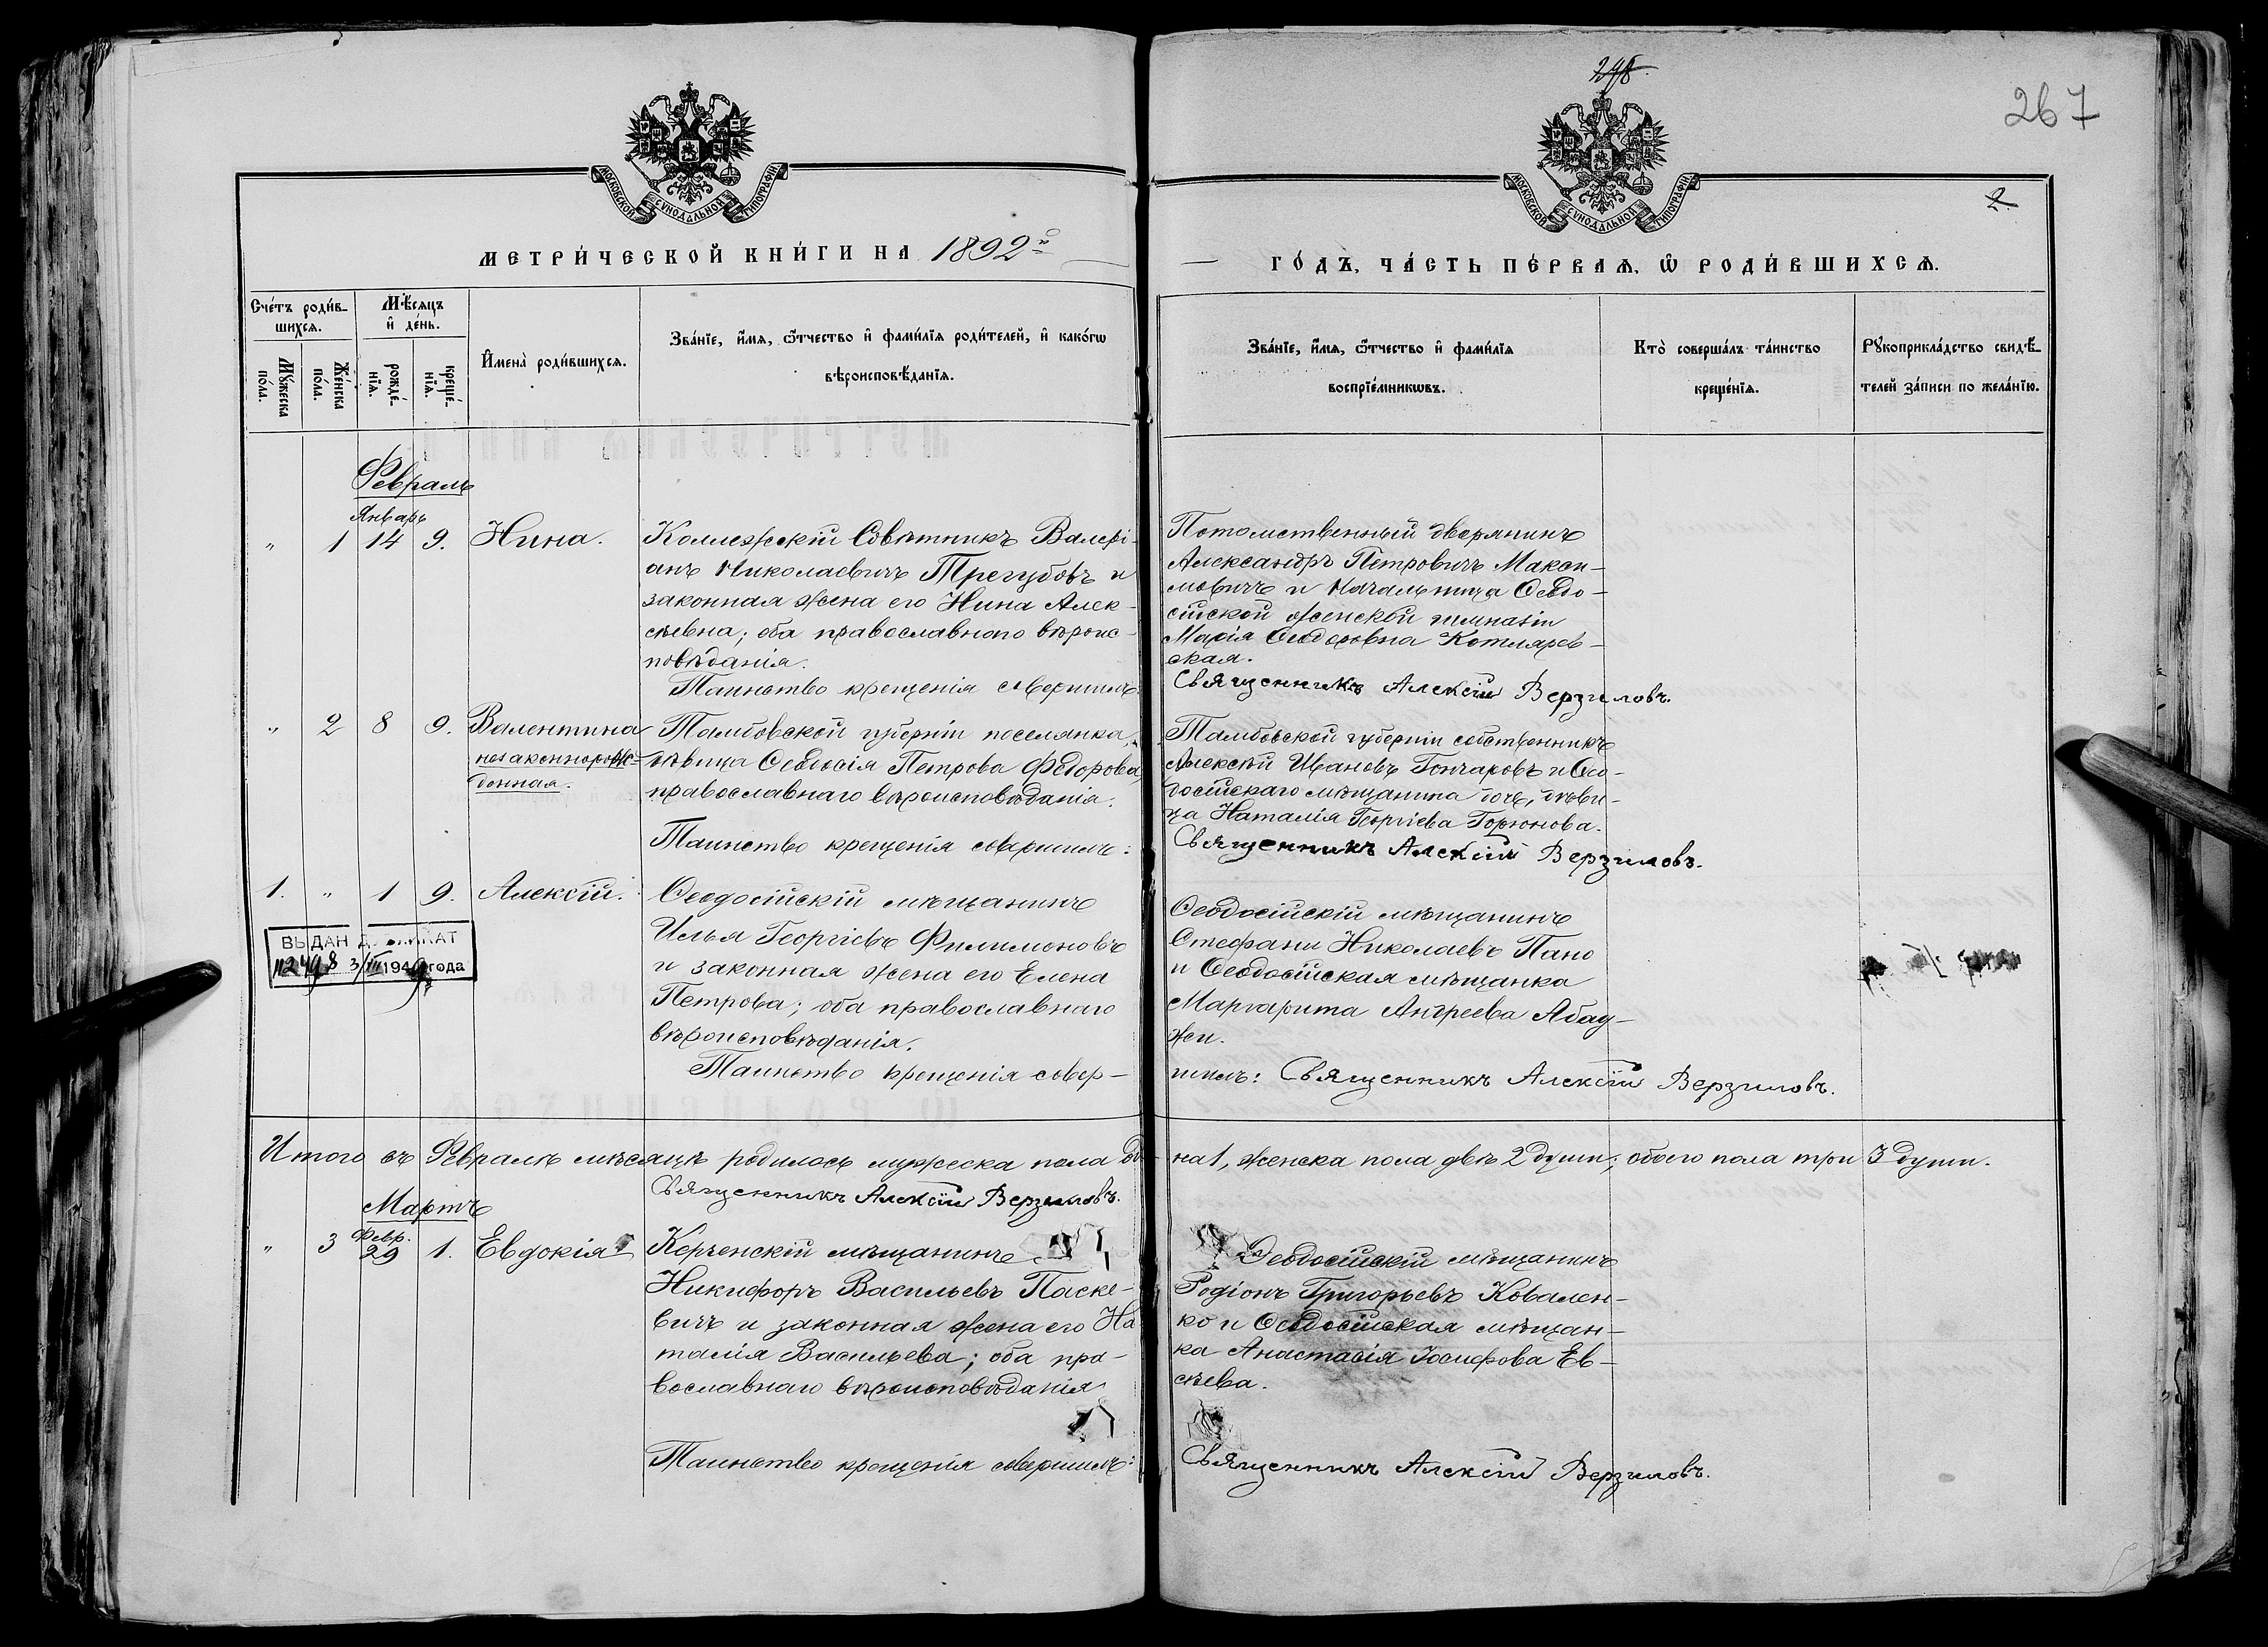 267
2.
МОСКОВСКОЙ СѴНОДАЛЬНОЙ ТИПОГРАФІИ
МОСКОВСКОЙ СѴНОДАЛЬНОЙ ТИПОГРАФІИ
МЕТРИ́ЧЕСКОЙ КНИ́ГИ НА 1892й
ГО́ДЪ, ЧА́СТЬ ПЕ́РВАѦ, Ѽ РОДИ́ВШИХСѦ.
Сче́тъ роди́в-
шихсѧ.
Мѣ́сѧцъ
и҆ де́нь.
Мꙋ́жеска
по́ла.
Же́нска
по́ла.
рожде́-
нїѧ.
креще́-
нїѧ.
И҆мена̀ роди́вшихсѧ.
Зва́нїе, и҆́мѧ, ѻ҆́тчество и҆ фами́лїѧ роди́телей, и҆ како́гѡ
вѣроисповѣ́данїѧ.
Зва́нїе, и҆́мѧ, ѻ҆́тчество и҆ фами́лїѧ
воспрїе́мникѡвъ.
Кто̀ соверша́лъ та́инство
креще́нїѧ.
Рꙋкоприкла́дство свидѣ́-
телей за́писи по жела́нїю.
Февраль
Январь
" 1 14 9. Нина.
Коллежскій Совѣтникъ Валері-
анъ Николаевичъ Трегубовъ и
законная жена его Нина Алек-
сѣевна; оба православного вѣроис-
повѣданія.
Таинство крещенія совершилъ:
Потомственный дворянинъ
Александръ Петровичъ Макси-
мовичъ и Начальница Ѳеодо-
сійской женской гимназіи
Марія Ѳеодоровна Котлярев-
ская.
Священникъ Алексій Верзиловъ.
" 2 8 9. Валентина
незаконнорож-
денная.
Тамбовской губерніи поселянка,
дѣвица Ѳеодосія Петрова Федорова,
православнаго вѣроисповѣданія.
Таинство крещенія совершилъ:
Тамбовской губерніи собственникъ
Алексѣй Ивановъ Гончаровъ и Ѳео-
досійскаго мѣщанина дочь, дѣви-
ца Наталія Георгіева Горюнова.
Священникъ Алексій Верзиловъ.
1. " 1 9. Алексій.
ВЫДАН ДУБЛИКАТ
3/III 1949 года
Ѳеодосійскій мѣщанинъ
Илья Георгіевъ Филимоновъ
и законная жена его Елена
Петрова; оба православнаго
вѣроисповѣданія.
Таинство крещенія совер-
Ѳеодосійскій мѣщанинъ
Стефанъ Николаевъ Пано
и Ѳеодосійская мѣщанка
Маргарита Андреева Абад-
жи.
шилъ: Священникъ Алексій Верзиловъ.
Итого въ Февралѣ мѣсяцѣ родилось мужеска пола од-
на 1, женска пола двѣ 2 души; обоего пола три 3 души.
Священникъ Алексій Верзиловъ.
Мартъ
Февр.
" 3 29 1. Евдокія
Керченскій мѣщанинъ
Никифоръ Васильевъ Паске-
вичъ и законная жена его На-
талія Васильева; оба пра-
вославнаго вѣроисповѣданія
Таинство крещенія совершилъ:
Ѳеодосійскій мѣщанинъ
Родіонъ Григорьевъ Ковален-
ко и Ѳеодосійская мѣщан-
ка Анастасія Іосифова Ев-
сѣева.
Священникъ Алексій Верзиловъ.